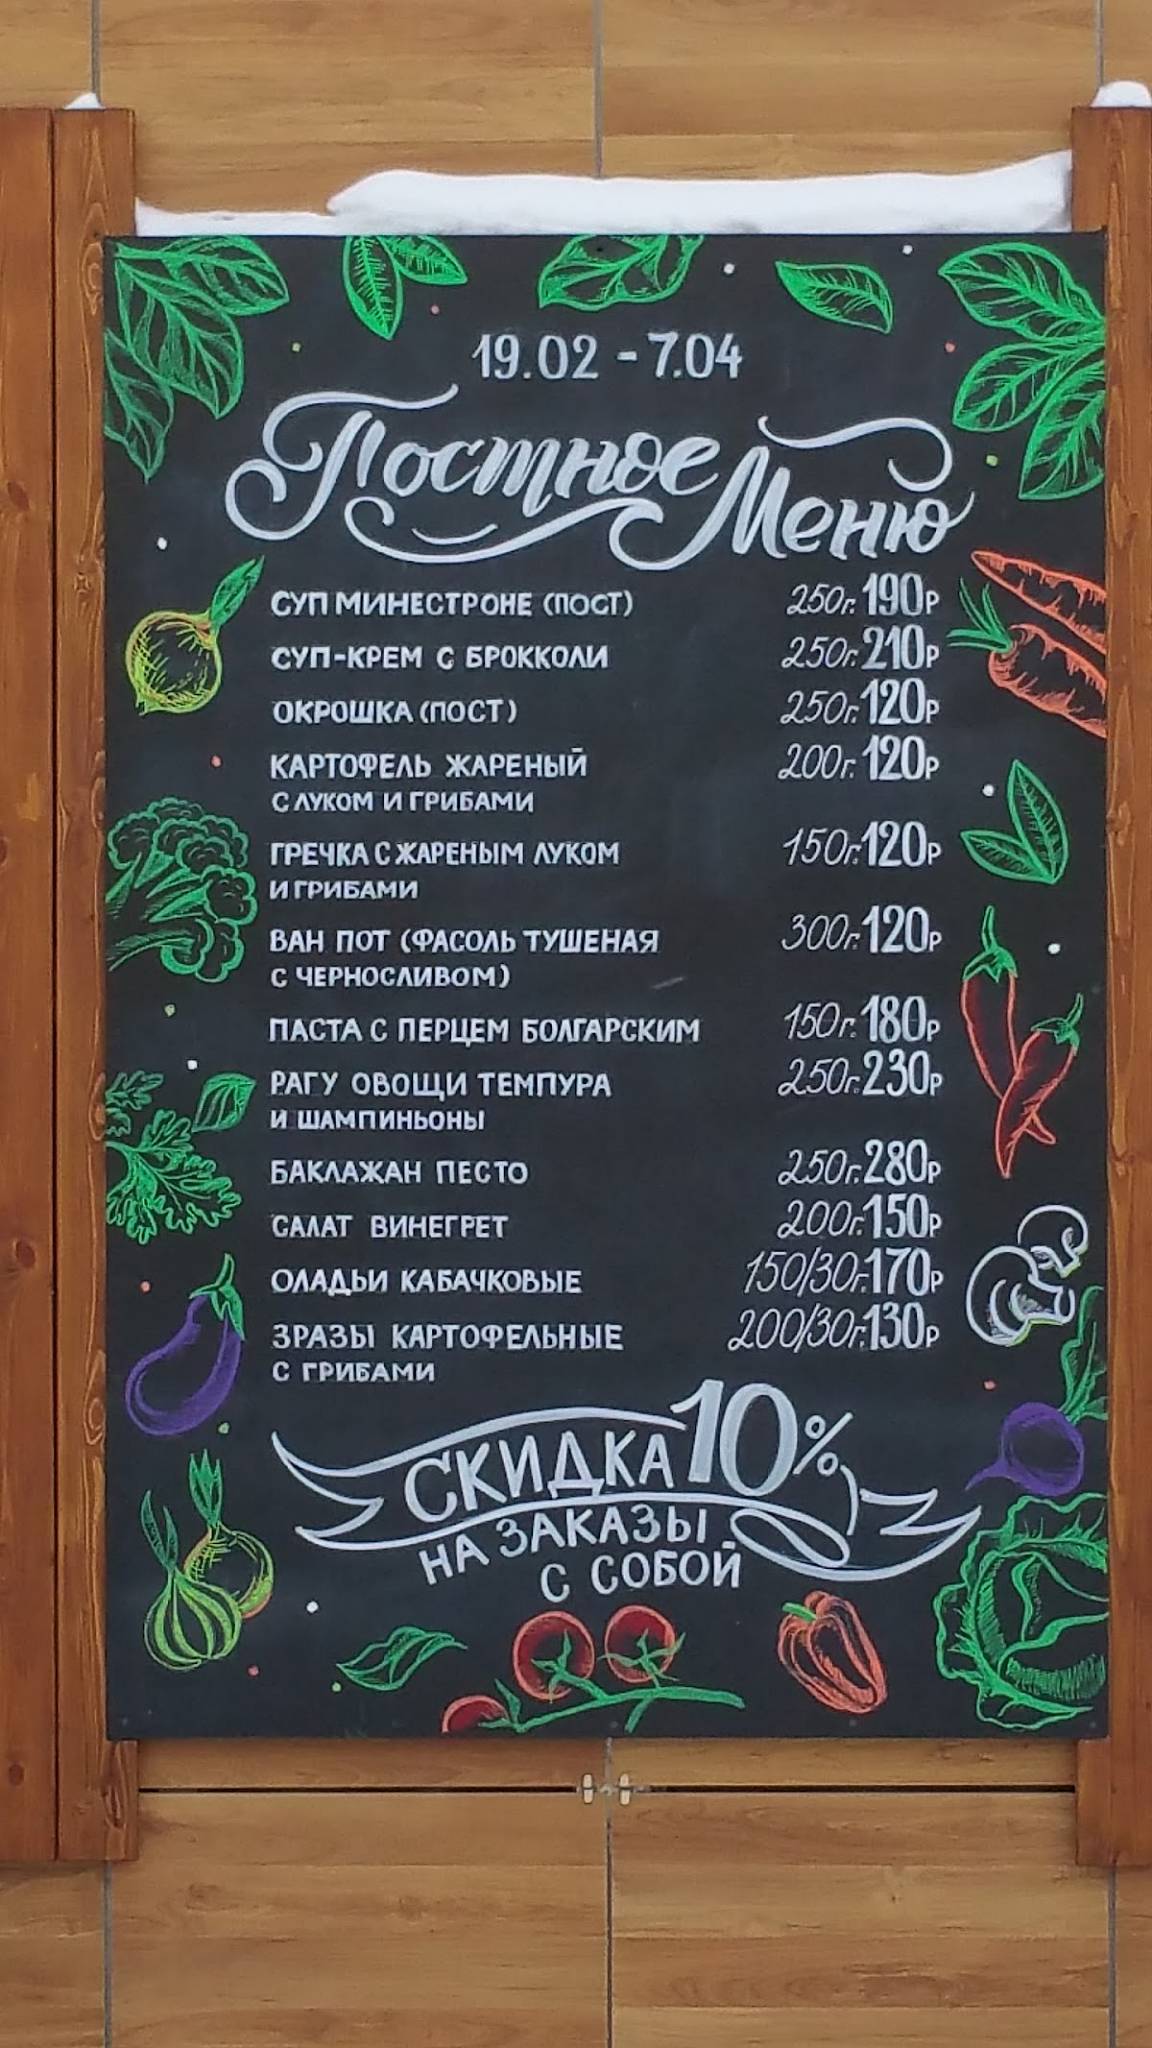 19.02 - 7.04
Постное Меню
СУП МИНЕСТРОНЕ (ПОСТ) 250г. 190Р
СУП-КРЕМ С БРОККОЛИ 250г. 210Р
ОКРОШКА (ПОСТ) 250г. 120Р
КАРТОФЕЛЬ ЖАРЕНЫЙ 200г. 120Р
С ЛУКОМ И ГРИБАМИ
ГРЕЧКА С ЖАРЕНЫМ ЛУКОМ 150г. 120Р
И ГРИБАМИ
ВАН ПОТ (ФАСОЛЬ ТУШЕНАЯ 300г. 120Р
С ЧЕРНОСЛИВОМ)
ПАСТА С ПЕРЦЕМ БОЛГАРСКИМ 150г. 180Р
РАГУ ОВОЩИ ТЕМПУРА 250г. 230Р
И ШАМПИНЬОНЫ
БАКЛАЖАН ПЕСТО 250г. 280Р
САЛАТ ВИНЕГРЕТ 200г. 150Р
ОЛАДЬИ КАБАЧКОВЫЕ 150/30г. 170Р
ЗРАЗЫ КАРТОФЕЛЬНЫЕ 200/30г. 130Р
С ГРИБАМИ
СКИДКА 10%
НА ЗАКАЗЫ
С СОБОЙ